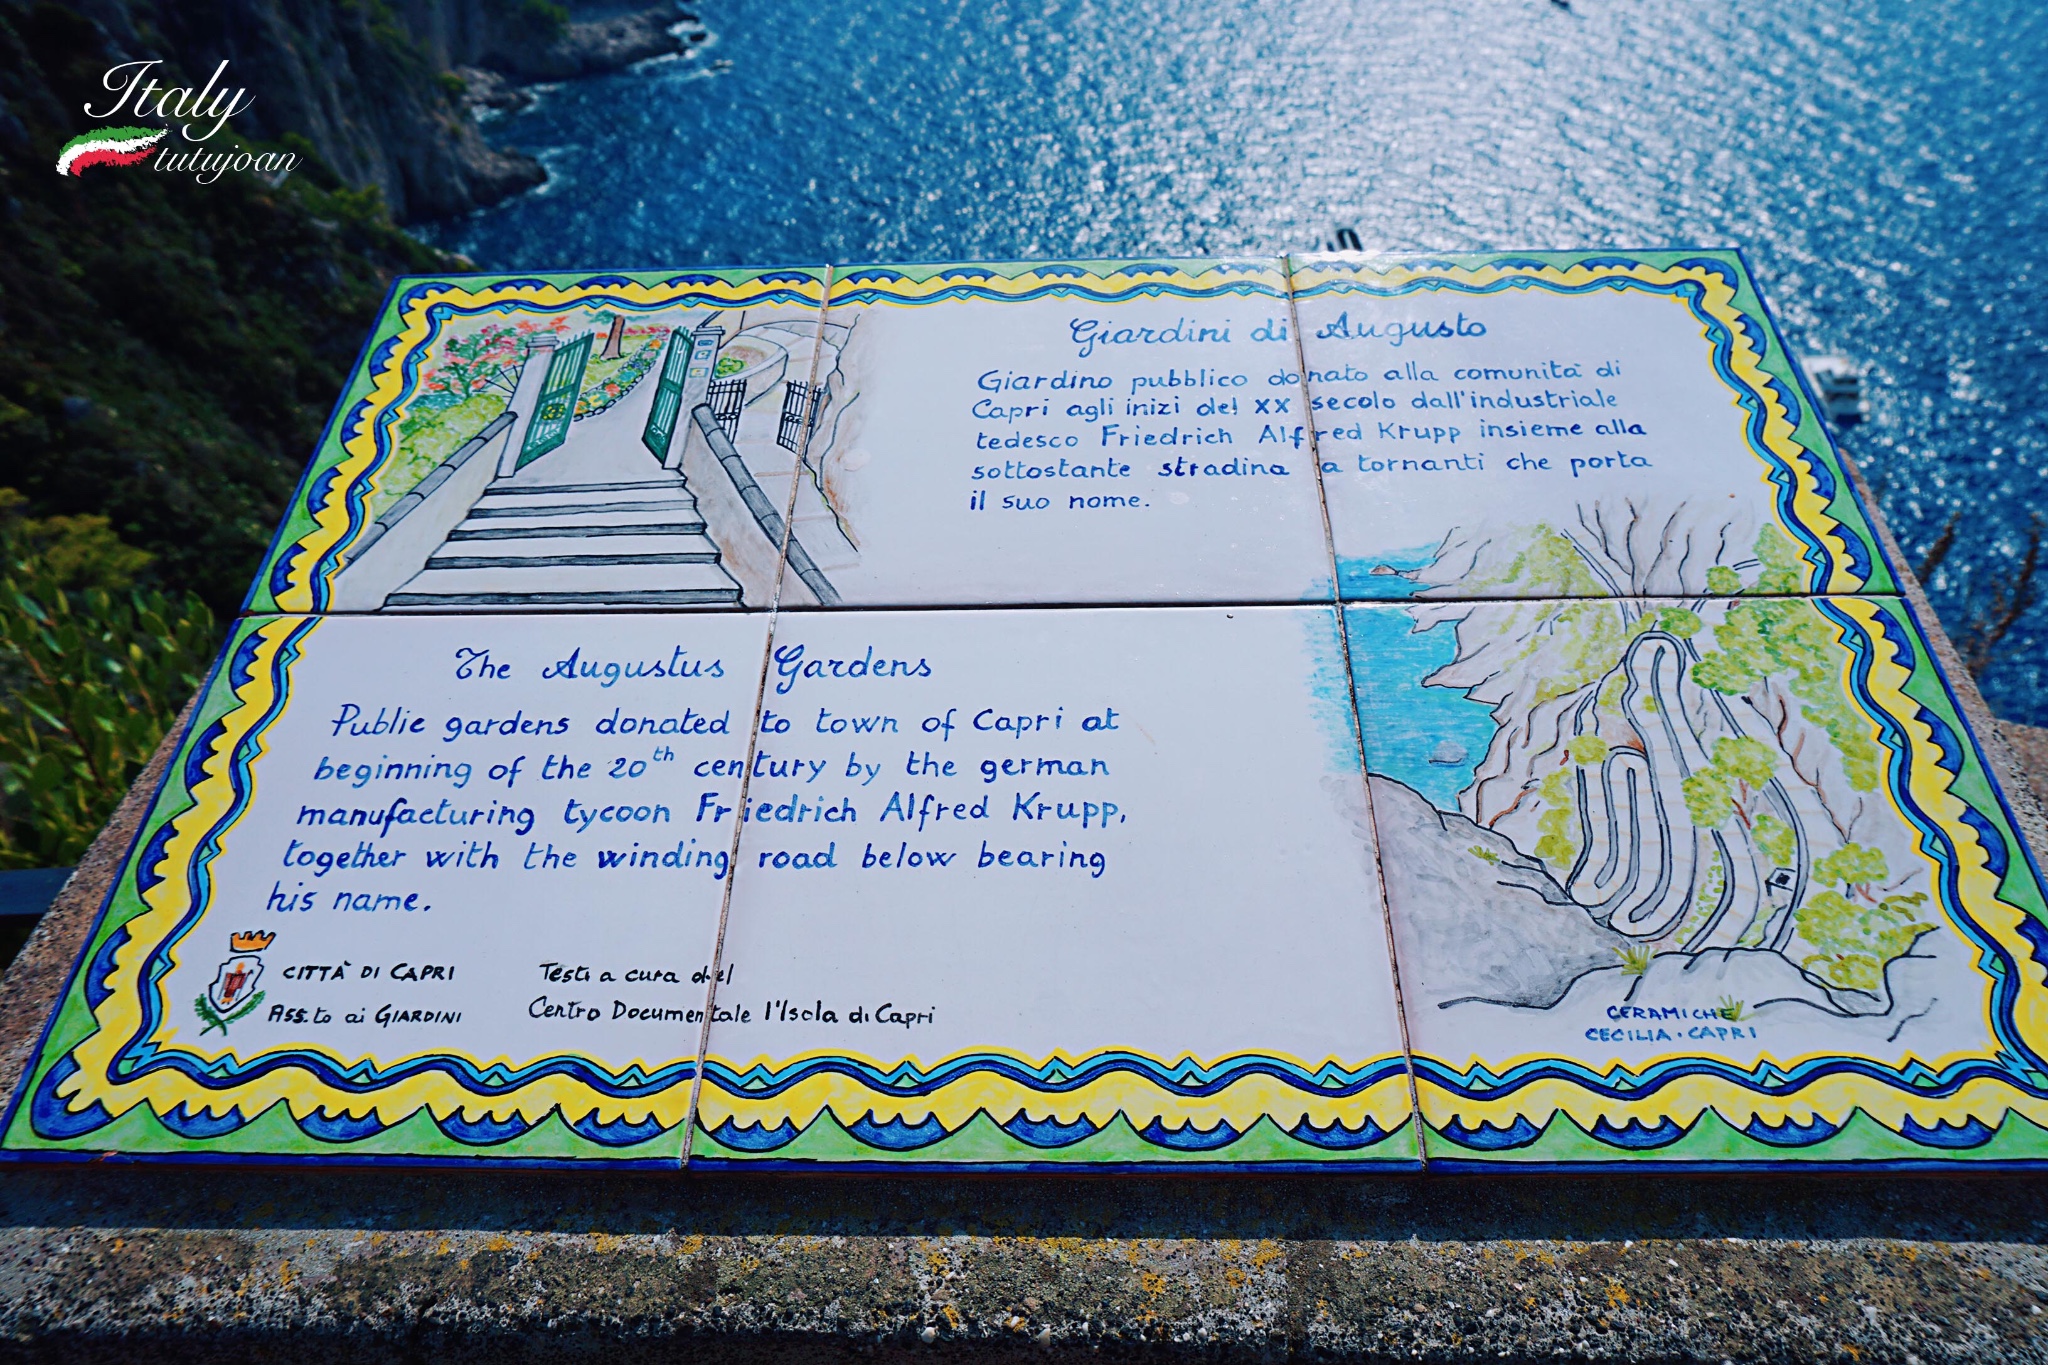 Italy
tutujoan
Giardini di Augusto
Giardino pubblico donato alla comunità di
Capri agli inizi del XX secolo dall'industriale
tedesco Friedrich Alfred Krupp insieme alla
sottostante stradina a tornanti che porta
il suo nome.
The Augustus Gardens
Public gardens donated to town of Capri at
beginning of the 20th century by the german
manufacturing tycoon Friedrich Alfred Krupp,
together with the winding road below bearing
his name.
CITTÀ DI CAPRI
Ass.to ai GIARDINI
Testi a cura del
Centro Documentale l'Isola di Capri
CERAMICHE
CECILIA · CAPRI